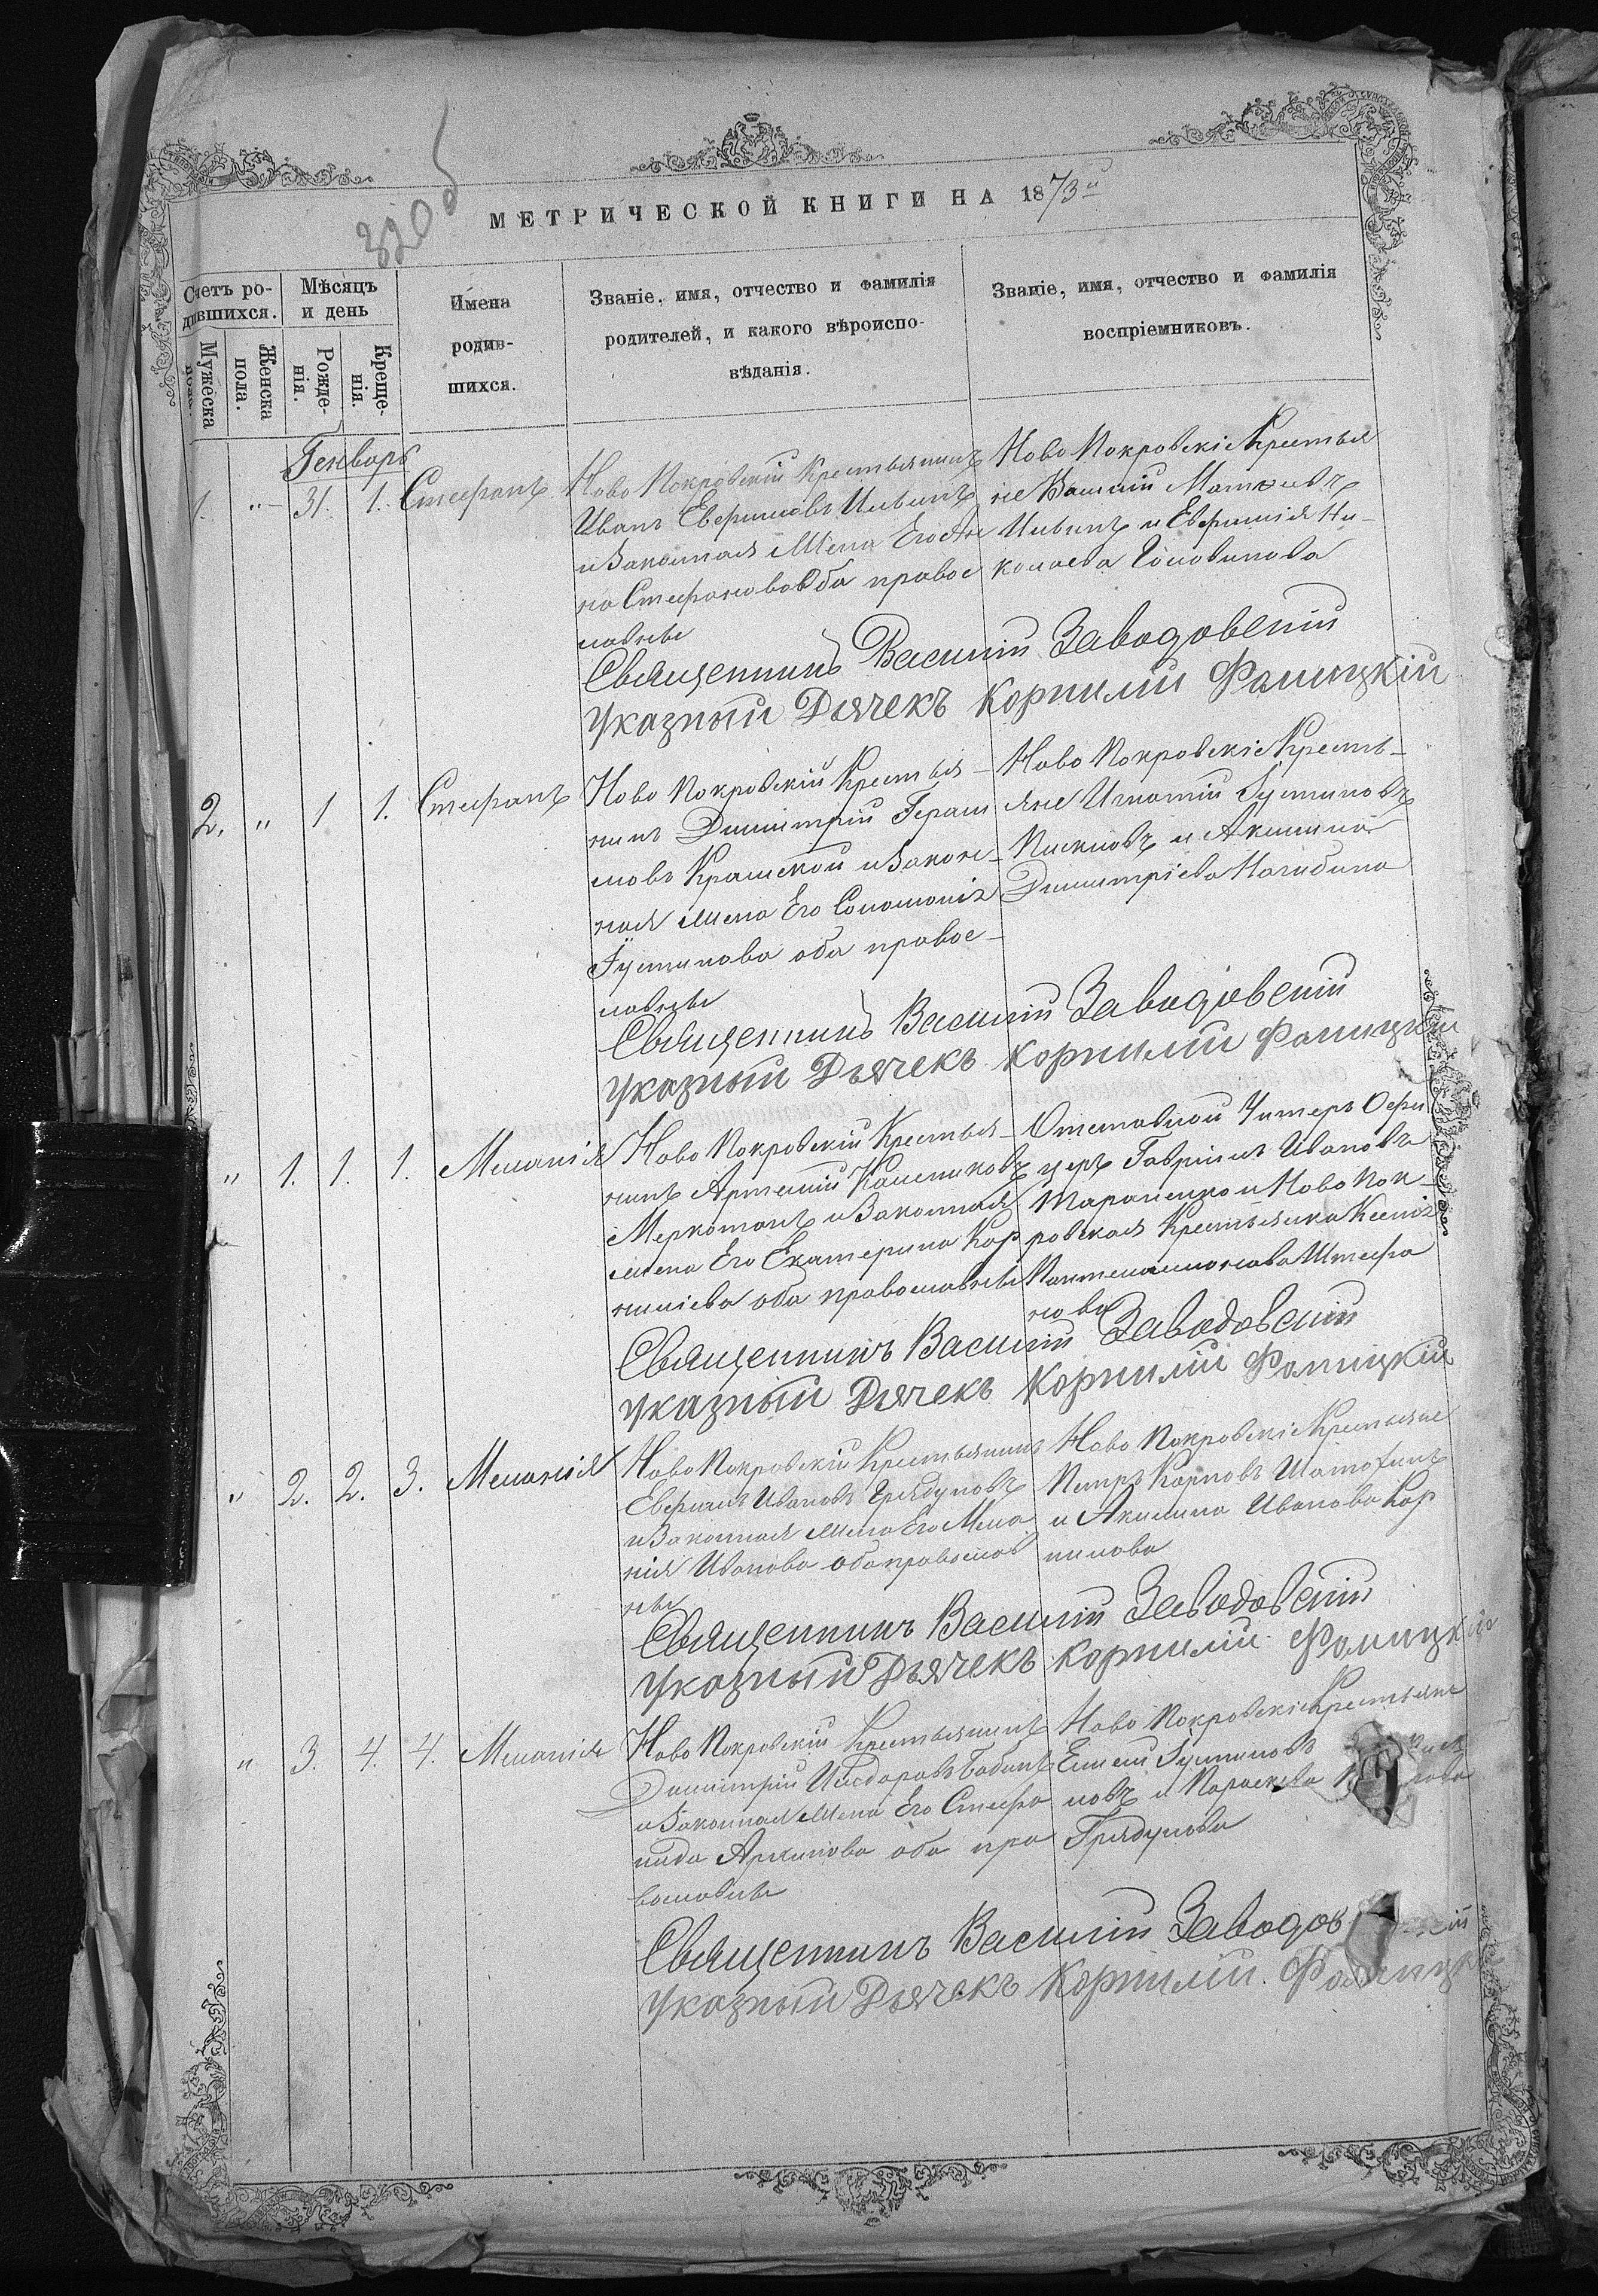 320 об
МЕТРИЧЕСКОЙ КНИГИ НА 1873й
Счетъ ро-
дившихся.
Мужеска
пола.
Женска
пола.
Мѣсяцъ
и день
Рожде-
нія.
Креще-
нія.
Имена
родив-
шихся.
Званіе, имя, отчество и фамилія
родителей, и какого вѣроиспо-
вѣданія.
Званіе, имя, отчество и фамилія
воспріемниковъ.
Генварь
1. " 31. 1. Стефанъ
Ново Покровскій Крестьянинъ
Иванъ Ефимовъ Ильинъ
и Законная Жена Его Ан
на Стефановова Оба право
славные
Ново Покровскіе Крестья
не Василій
Ильинъ и Евфимія Ни-
колаева Головинова
Священникъ Василій Заводовскій
Указный Дьячекъ Корнилій Фалицкій
2. " 1 1. Стефанъ
Ново Покровскій Крестья-
нинъ Димитрій Гераси
мовъ и Закон-
ная жена Его Соломонія
Іустинова оба право-
славные
Ново Покровскіе Кресть-
яне Игнатій Іустиновъ
и Акилина
Димитріева Нагибина
Священникъ Василій Заводовскій
Указный Дьячекъ Корнилій Фалицкій
" 1. 1. 1. Меланія
Ново Покровскій Крестья-
нинъ Артемій
и Законная
жена Его Екатерина Кор
ниліева оба православные
Отставной Унтеръ Офи
церъ Гавріилъ Ивановъ
Тараненко и Ново Пок-
ровская Крестьянка Ксенія
Пантелеимонова Штефа
нова
Священникъ Василій Заводовскій
Указный Дьячекъ Корнилій Фалицкій
" 2. 2. 3. Меланія
Ново Покровскій Крестьянинъ
Ефимъ Ивановъ Грядуновъ
и Законная жена Его Мела
нія Иванова оба православ
ные
Ново Покровскіе Крестьяне
Петръ Карповъ
и Акилина Иванова Кор
нилова
Священникъ Василій Заводовскій
Указный Дьячекъ Корнилій Фалицкій
" 3. 4. 4. Меланія
Ново Покровскій Крестьянинъ
Димитрій Исидоровъ Бабинъ
и Законная Жена Его Стефа
нида Архипова оба пра
вославные
Ново Покровскіе Крестьяне
Елисей Іустиновъ
новъ и Параскева
Грядунова
Священникъ Василій Заводов ій
Указный Дьячекъ Корнилій Фалицкій